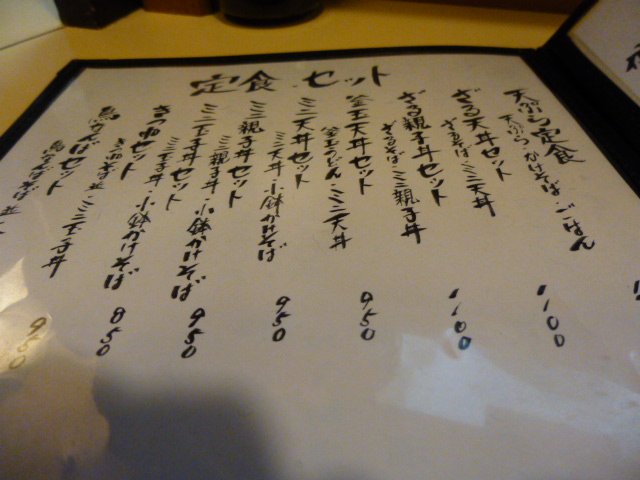 定食・セット
天ぷら定食
天ぷら・かけそば・ごはん
1100
ざる天丼セット
ざるそば・ミニ天丼
1100
ざる親子丼セット
ざるそば・ミニ親子丼
950
釜玉天丼セット
釜玉うどん・ミニ天丼
950
ミニ天丼セット
ミニ天丼・小鉢かけそば
950
ミニ親子丼セット
ミニ親子丼・小鉢かけそば
850
ミニ玉子丼セット
ミニ玉子丼・小鉢かけそば
950
きつねセット
ミニ玉子丼
鳥なんばセット